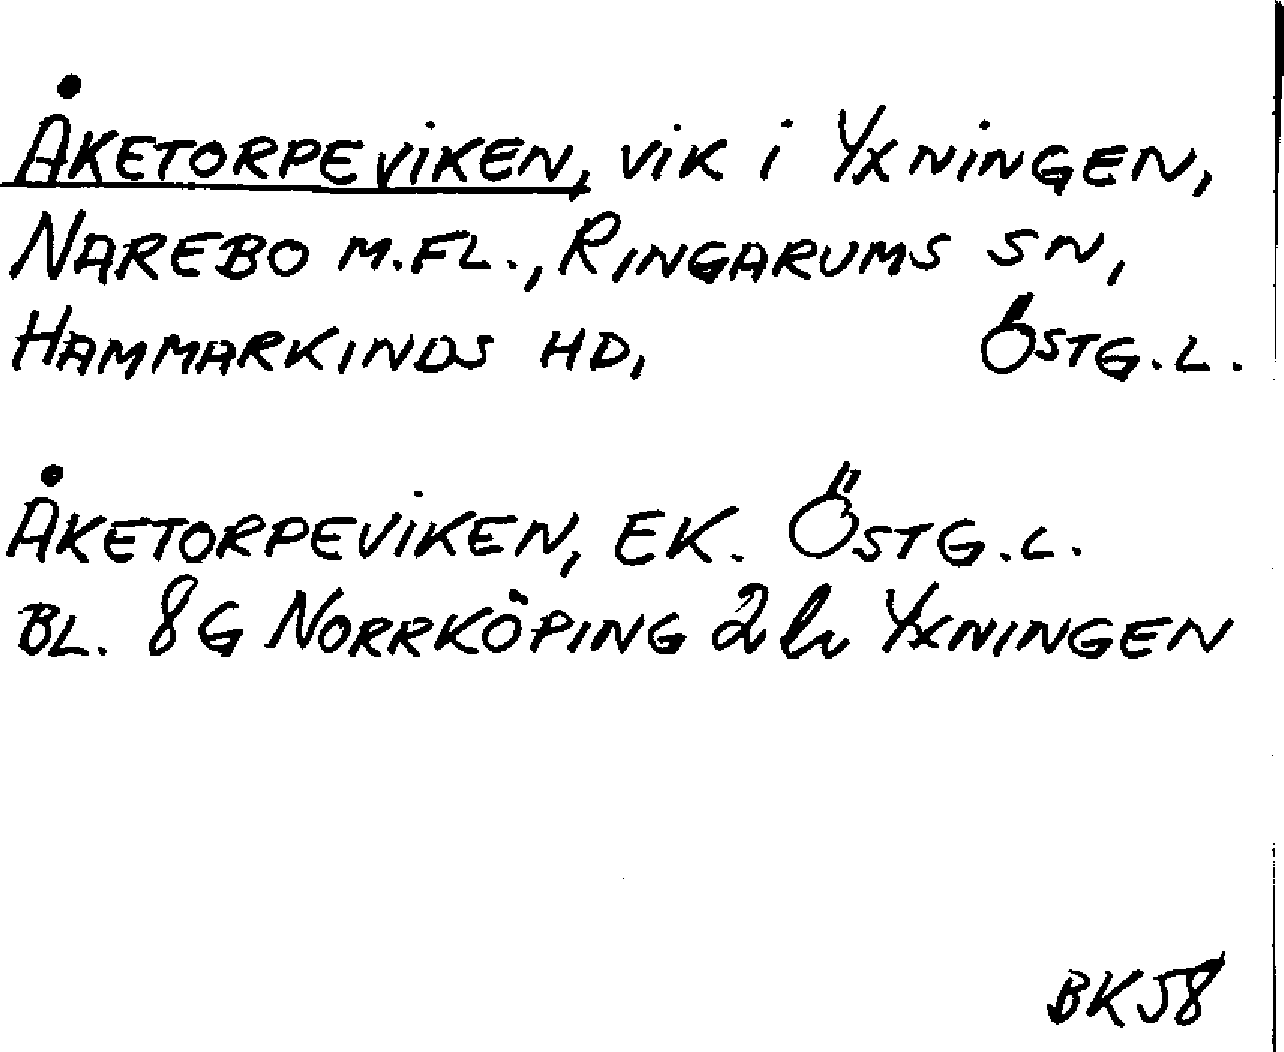 ÅKETORPEVIKEN, VIK I YXNINGEN,
NAREBO M.FL., RINGARUMS SN,
HAMMARKINDS HD, ÖSTG.L.
ÅKETORPEVIKEN, EK. ÖSTG.L.
BL. 8G NORRKÖPING 2h YXNINGEN
BK58